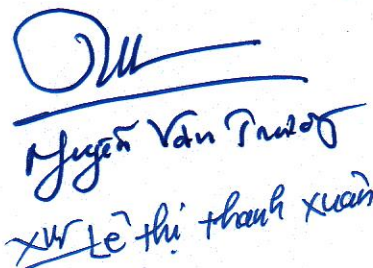 Nguyễn Văn Trường
Lê thị thanh xuân